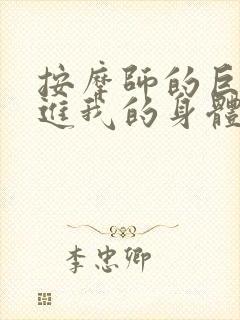 按摩師的巨
進我的身體
李忠卿